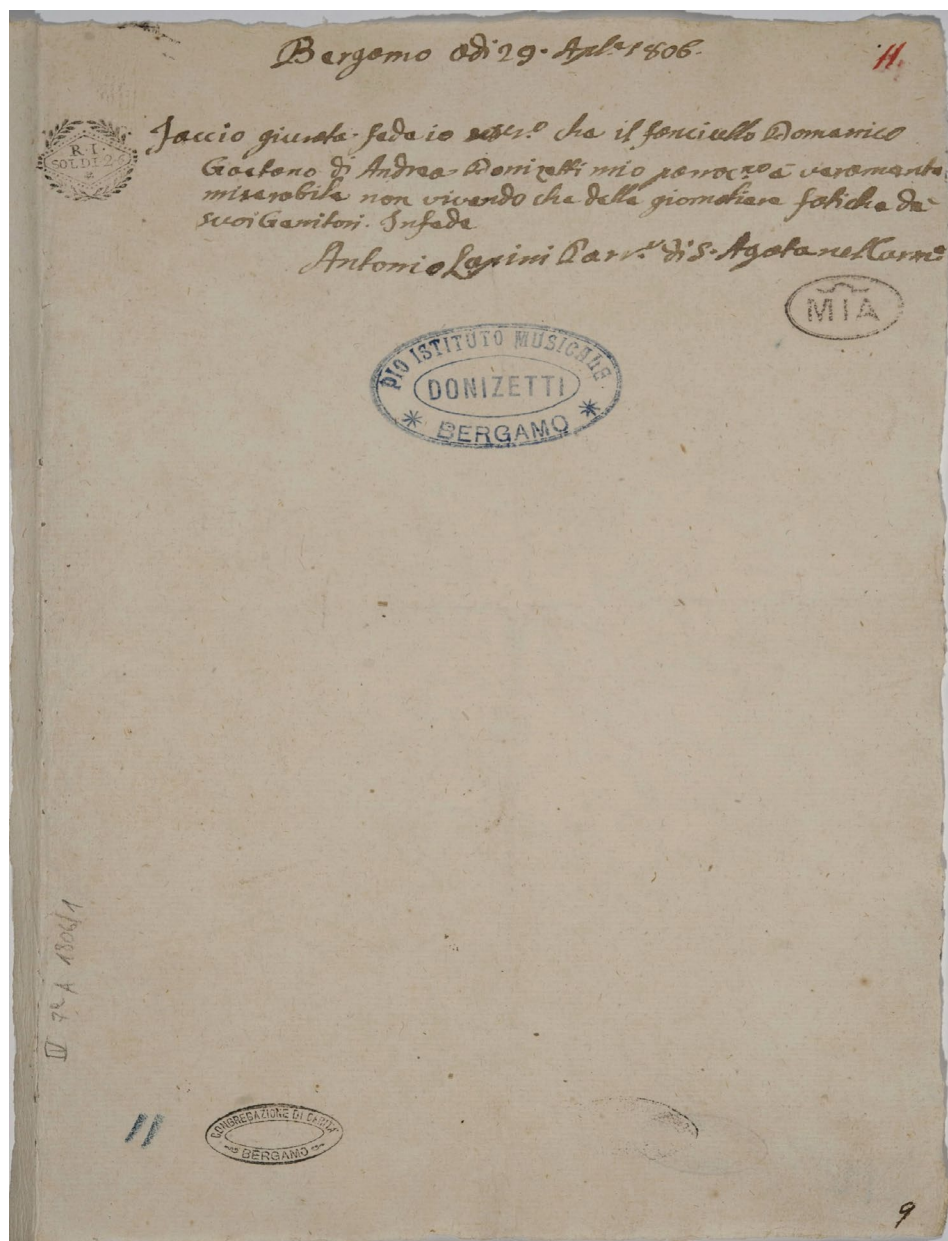 Bergamo adi 29. Aple 1806.
11.
R. I.
SOLDI 25
Faccio giurata fede io che il fanciullo Domenico
Gaetano di Andrea Donizetti mio è veramente
miserabile non vivendo che delle giornaliere fatiche de
suoi Genitori. In fede
Antonio Parr.o di S. Agata nel Carm.e
MIA
PIO ISTITUTO MUSICALE
DONIZETTI
BERGAMO
IV 7a A 1806/1
11
CONGREGAZIONE DI CARITÀ
BERGAMO
9